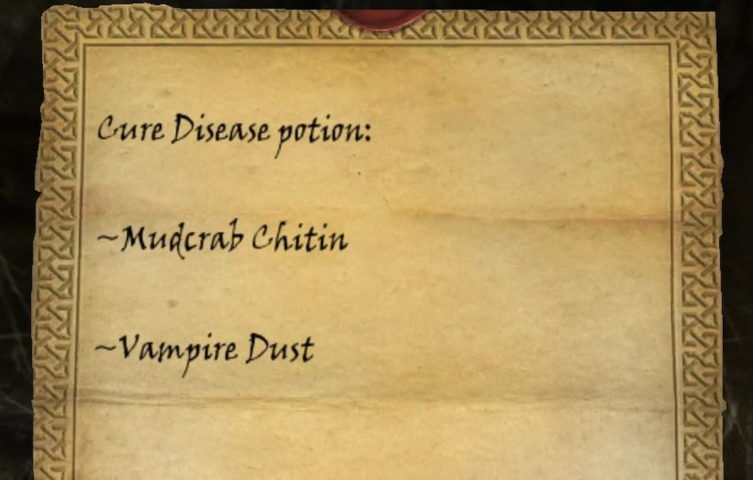 Cure Disease potion:
~Mudcrab Chitin
~Vampire Dust